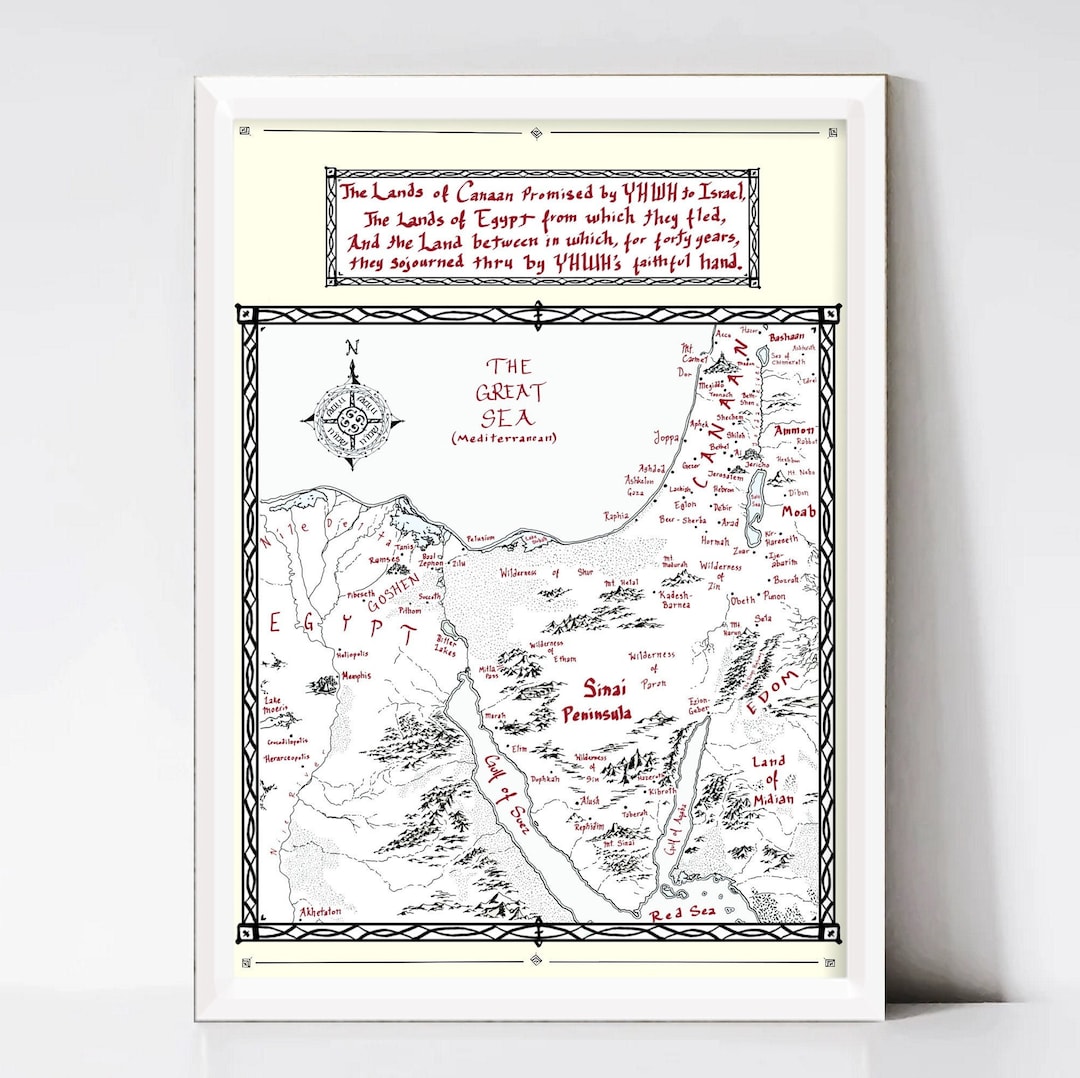 The Lands of Canaan Promised by YHWH to Israel,
The Lands of Egypt from which they fled,
And the Land between in which, for forty years,
they sojourned thru by YHWH's faithful hand.
N
THE
GREAT
SEA
(Mediterranean)
Acco
Hazor
Bashaan
Ashtaroth
Mt.
Carmel
Sea of
Chinnerath
Dor
Edrei
Megiddo
Taanach
Beth-
Shan
CANAAN
Shechem
Aphek
Shiloh
Ammon
Rabbat
Joppa
Bethel
Ai
Jericho
Heshbon
Ashdod
Gezer
Jerusalem
Mt Nebo
Ashkelon
Gaza
Lachish
Hebron
Salt
Sea
Dibon
Eglon
Debir
Moab
Raphia
Beer-Sherba
Arad
Hormah
Kir-
Hareseth
Zoar
Iye-
abarim
Nile De
Tanis
Ramses
Baal
Zephon
Pelusium
Zilu
Wilderness of Shur
Mt Helal
Mt
Madurah
Wilderness
of
Zin
Bozrah
GOSHEN
Pibeseth
Succoth
Pithom
Kadesh-
Barnea
Oboth
Punon
EGYPT
Bitter
Lakes
Mt
Harun
Sela
Heliopolis
Wilderness
of
Etham
Wilderness
of
Paran
Memphis
Mitla
Pass
Sinai
Peninsula
EDOM
Lake
Moeris
Ezion-
Geber
Marah
Crocodilopolis
Herarceopolis
Elim
Gulf of Suez
Wilderness
of
Sin
Hazeroth
Land
of
Midian
Dophkah
Kibroth
Alush
Taberah
Rephidim
Mt Sinai
Gulf of Aqaba
N
Akhetaton
Red Sea